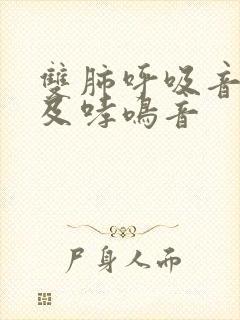 雙肺呼吸音
及哮鳴音
尸身人而